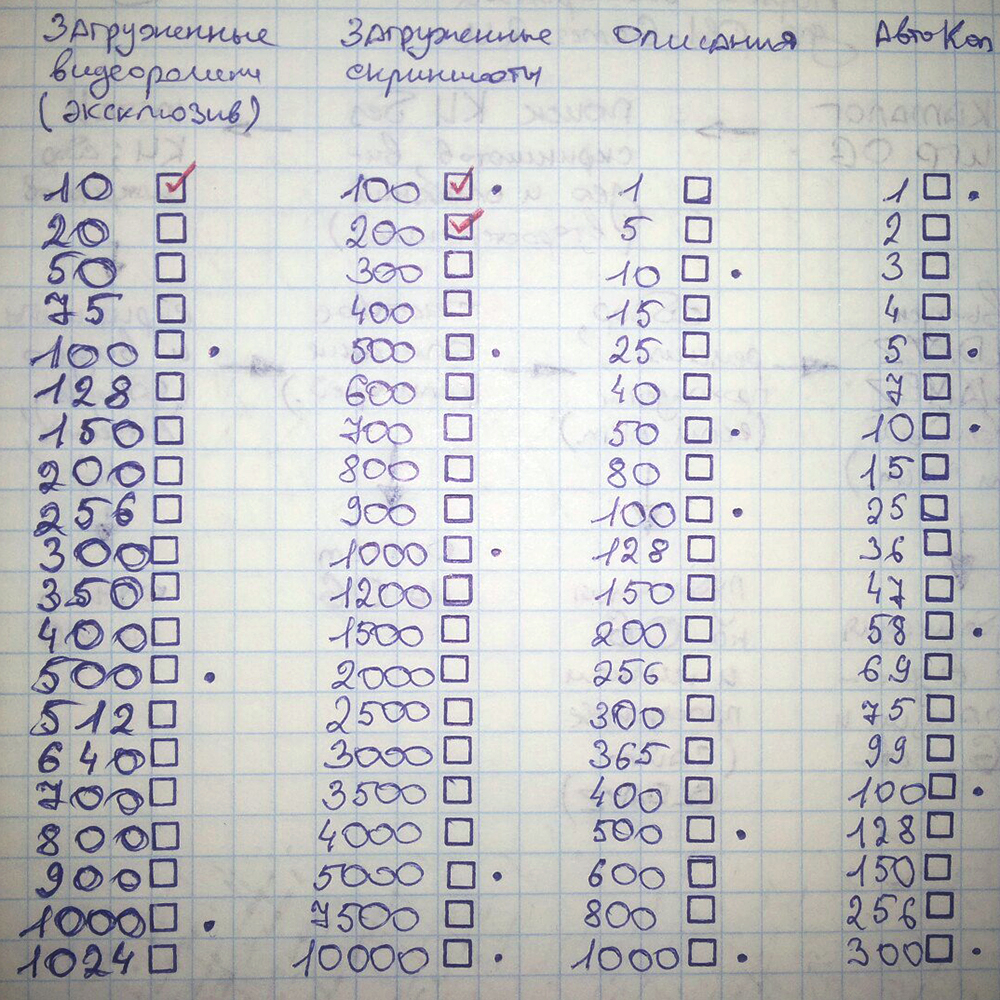 Загруженные Загруженные Описания АвтоКоп
видеоролики скриншоты
(эксклюзив)
10 ☑ 100 ☑ • 1 ☐ 1 ☐ •
20 ☐ 200 ☑ 5 ☐ 2 ☐
50 ☐ 300 ☐ 10 ☐ • 3 ☐
75 ☐ 400 ☐ 15 ☐ 4 ☐
100 ☐ • 500 ☐ • 25 ☐ 5 ☐ •
128 ☐ 600 ☐ 40 ☐ 7 ☐
150 ☐ 700 ☐ 50 ☐ • 10 ☐ •
200 ☐ 800 ☐ 80 ☐ 15 ☐
256 ☐ 900 ☐ 100 ☐ • 25 ☐
300 ☐ 1000 ☐ • 128 ☐ 36 ☐
350 ☐ 1200 ☐ 150 ☐ 47 ☐
400 ☐ 1500 ☐ 200 ☐ 58 ☐ •
500 ☐ • 2000 ☐ 256 ☐ 69 ☐
512 ☐ 2500 ☐ 300 ☐ 75 ☐
640 ☐ 3000 ☐ 365 ☐ 99 ☐
700 ☐ 3500 ☐ 400 ☐ 100 ☐ •
800 ☐ 4000 ☐ 500 ☐ • 128 ☐
900 ☐ 5000 ☐ • 600 ☐ 150 ☐
1000 ☐ • 7500 ☐ 800 ☐ 256 ☐
1024 ☐ 10000 ☐ • 1000 ☐ • 300 ☐ •